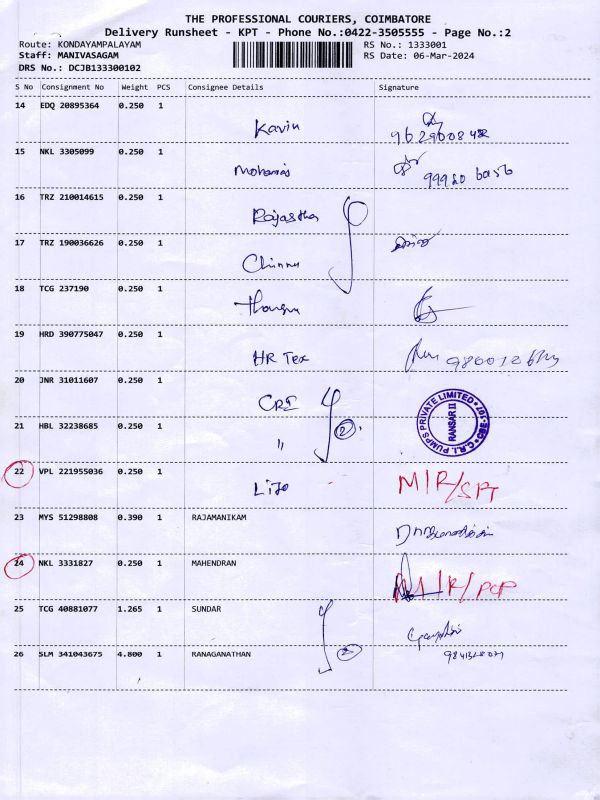 THE PROFESSIONAL COURIERS, COIMBATORE
Delivery Runsheet - KPT - Phone No.:0422-3505555 - Page No.:2
Route: KONDAYAMPALAYAM RS No.: 1333001
Staff: MANIVASAGAM RS Date: 06-Mar-2024
DRS No.: DCJB133300102
S No Consignment No Weight PCS Consignee Details Signature
14 EDQ 20895364 0.250 1
Kavin
15 NKL 3305099 0.250 1
Mohanraj
16 TRZ 210014615 0.250 1
17 TRZ 190036626 0.250 1
Chinnu
18 TCG 237190 0.250 1
19 HRD 390775047 0.250 1
HR Tex
20 JNR 31011607 0.250 1
CRI
21 HBL 32238685 0.250 1
" 2
C.R.I. PUMPS PRIVATE LIMITED
RANSAR II
22 VPL 221955036 0.250 1
Lijo M/R/SPT
23 MYS 51298808 0.390 1 RAJAMANIKAM
24 NKL 3331827 0.250 1 MAHENDRAN
25 TCG 40881077 1.265 1 SUNDAR
26 SLM 341043675 4.800 1 RANAGANATHAN
2